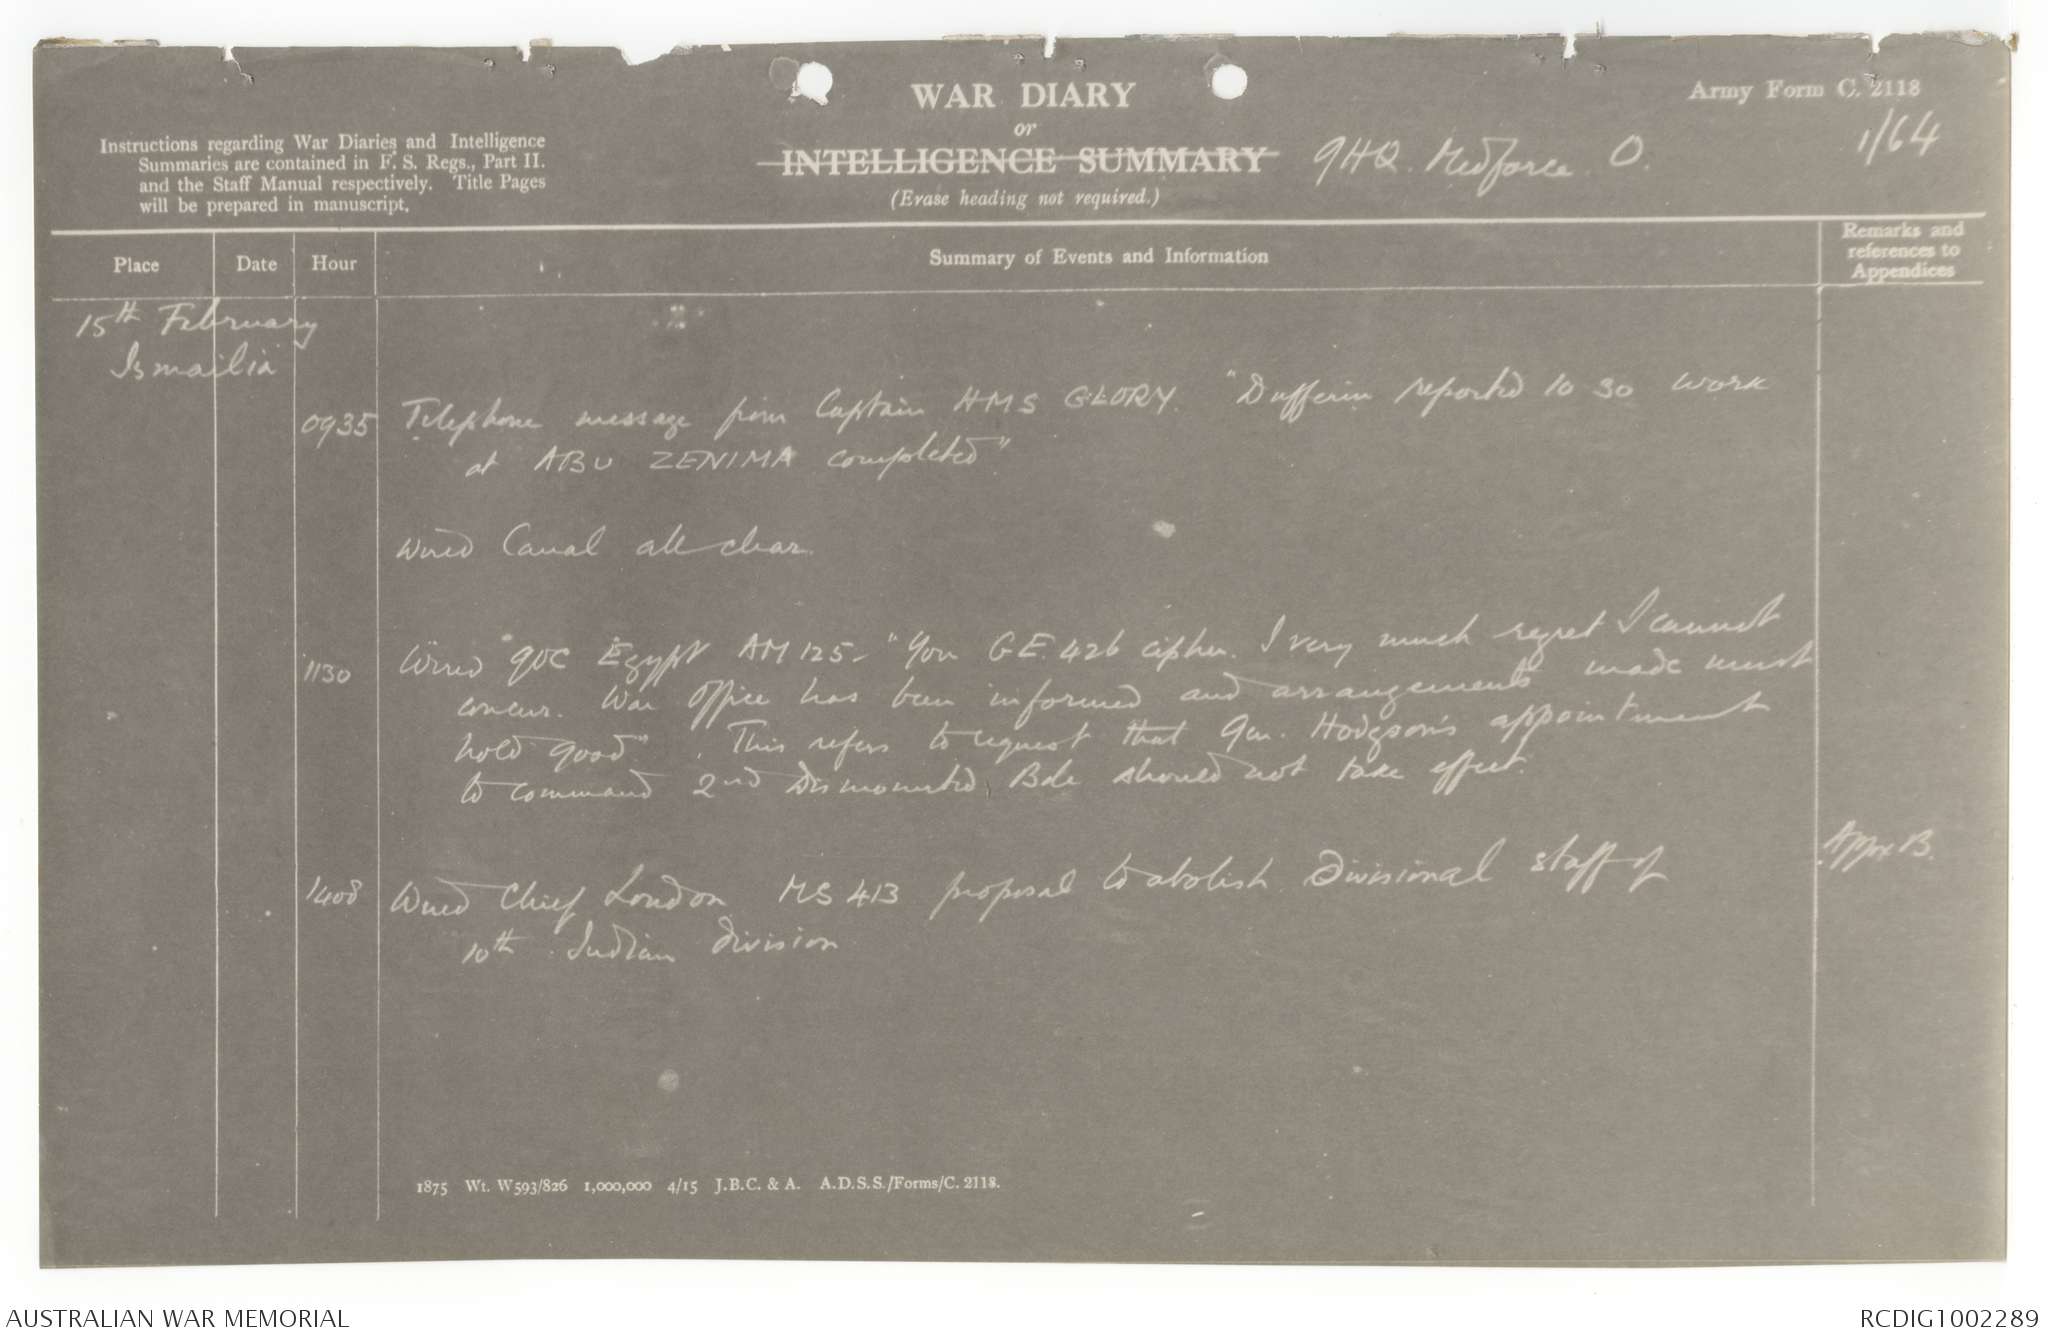 WAR DIARY
or
INTELLIGENCE SUMMARY
(Erase heading not required.)
GHQ. Medforce. O.
Army Form C. 2118
1/64
Instructions regarding War Diaries and Intelligence
Summaries are contained in F. S. Regs., Part II.
and the Staff Manual respectively. Title Pages
will be prepared in manuscript.
Place
Date
Hour
Summary of Events and Information
Remarks and
references to
Appendices
15th February
Ismailia
0935 Telephone message from Captain HMS GLORY. "Dufferin reported 10 30 work
at ABU ZENIMA completed"
Wired Canal all clear.
1130 Wired GOC Egypt AM 125 - "Your G.E. 426 cipher. I very much regret I cannot
concur. War Office has been informed and arrangements made must
hold good". This refers to request that Gen. Hodgson's appointment
to command 2nd Dismounted Bde should not take effect.
1408 Wired Chief London MS 413 proposal to abolish Divisional staff of
10th Indian Division
Appx B.
1875 Wt. W593/826 1,000,000 4/15 J.B.C. & A. A.D.S.S./Forms/C. 2118.
AUSTRALIAN WAR MEMORIAL
RCDIG1002289